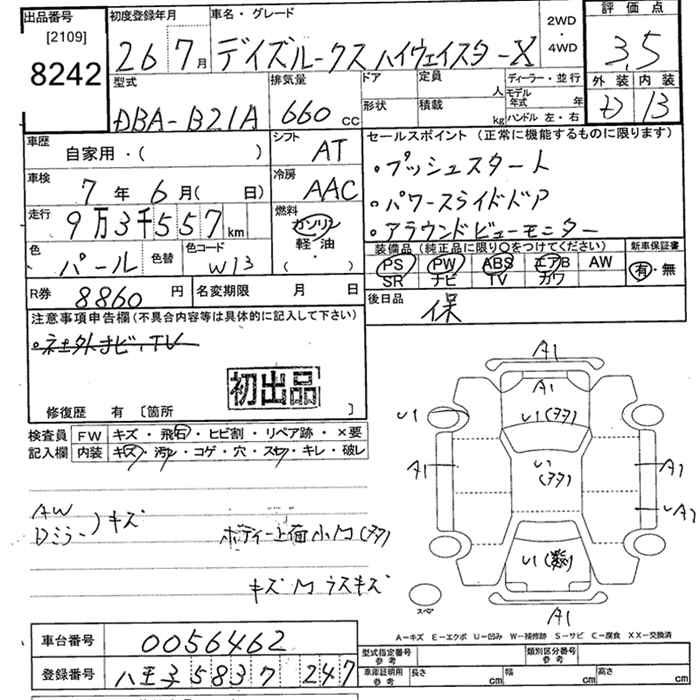 出品番号 [2109] 8242
初度登録年月 26 7月
車名・グレード デイズルークス ハイウェイスターX
2WD ・ 4WD
評価点 3.5
外装 内装
13
型式 DBA-B21A
排気量 660 cc
ドア 形状
定員 人
積載 kg
ディーラー・並行
モデル年式 年
ハンドル 左・右
車歴 自家用・( )
シフト AT
車検 7年 6月( 日)
冷房 AAC
走行 9万3千557km
燃料 ガソリン 軽・油 ( )
色 パール 色替 色コード W13
R券 8860円
名変期限 月 日
セールスポイント (正常に機能するものに限ります)
・プッシュスタート
・パワースライドドア
・アラウンドビューモニター
装備品(純正品に限り○をつけてください)
新車保証書
PS PW ABS エアB AW
SR ナビ TV カワ
有・無
後日品 保
注意事項申告欄(不具合内容等は具体的に記入して下さい)
・社外ナビ、TV
初出品
修復歴 有 〔箇所 〕
検査員記入欄
FW キズ・飛石・ヒビ割・リペア跡・×要
内装 キズ・汚レ・コゲ・穴・スレ・キレ・破レ
AW
Dミラー )キズ
ボディー上面小凹(多)
キズ凹ラスキズ
A1
A1
U1 U1(多)
A1 U1(多) A1
A1
U1(多数)
A1
スペア
A-キズ E-エクボ U-凹み W-補修跡 S-サビ C-腐食 XX-交換済
車台番号 0056462
登録番号 八王子 583 ワ 247
型式指定番号 参考
類別区分番号 参考
車庫証明用 参考
長さ cm 幅 cm 高さ cm